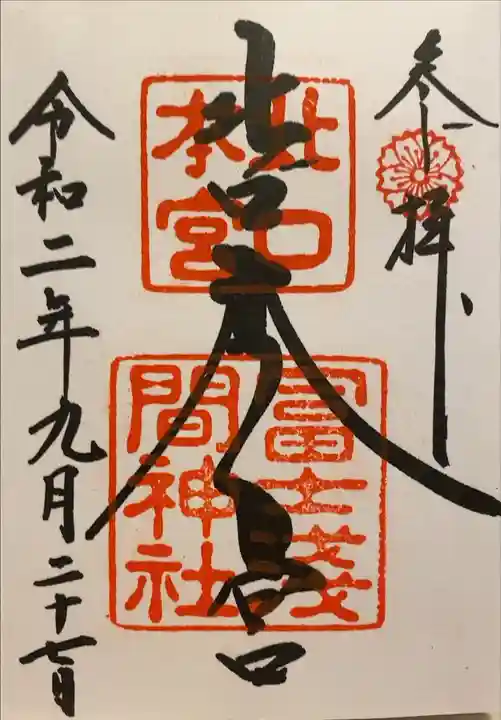 参拝
北口本宮
北口
本宮
冨士浅
間神社
令和二年九月二十七日